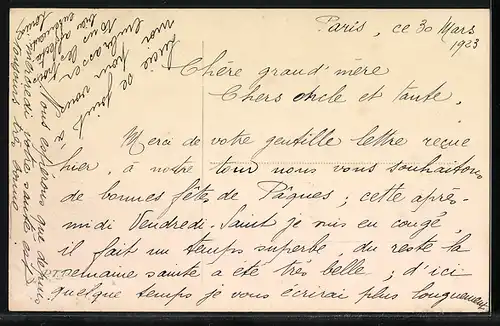 Paris, ce 30 Mars
1923
Chère grand'mère
Chers oncle et tante,
Merci de votre gentille lettre reçue
hier, à notre tour nous vous souhaitons
de bonnes fêtes de Pâques; cette après-
midi Vendredi-Saint je suis en congé,
il fait un temps superbe, du reste la
semaine sainte a été très belle; d'ici
quelque temps je vous écrirai plus longuement
Nous espérons que depuis
mercredi votre santé est
toujours très bonne
Lucie se joint à
moi pour vous
embrasser
tous